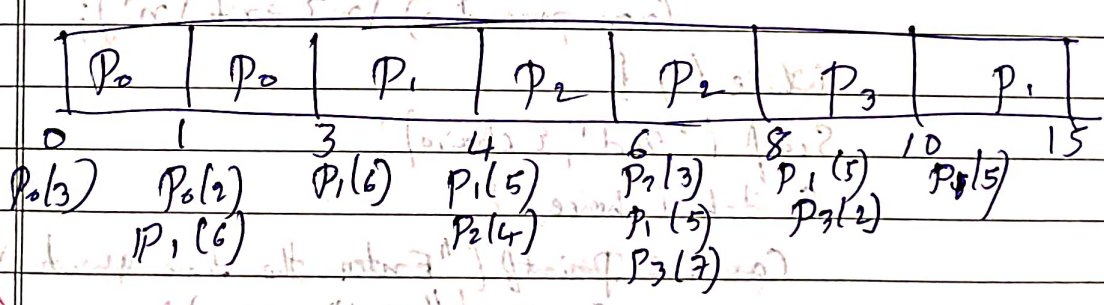 P₀ P₀ P₁ P₂ P₂ P₃ P₁
0 1 3 4 6 8 10 15
P₀(3) P₀(2) P₁(6) P₁(5) P₂(3) P₁(5) P₁(5)
P₁(6) P₂(4) P₁(5) P₃(2)
P₃(7)